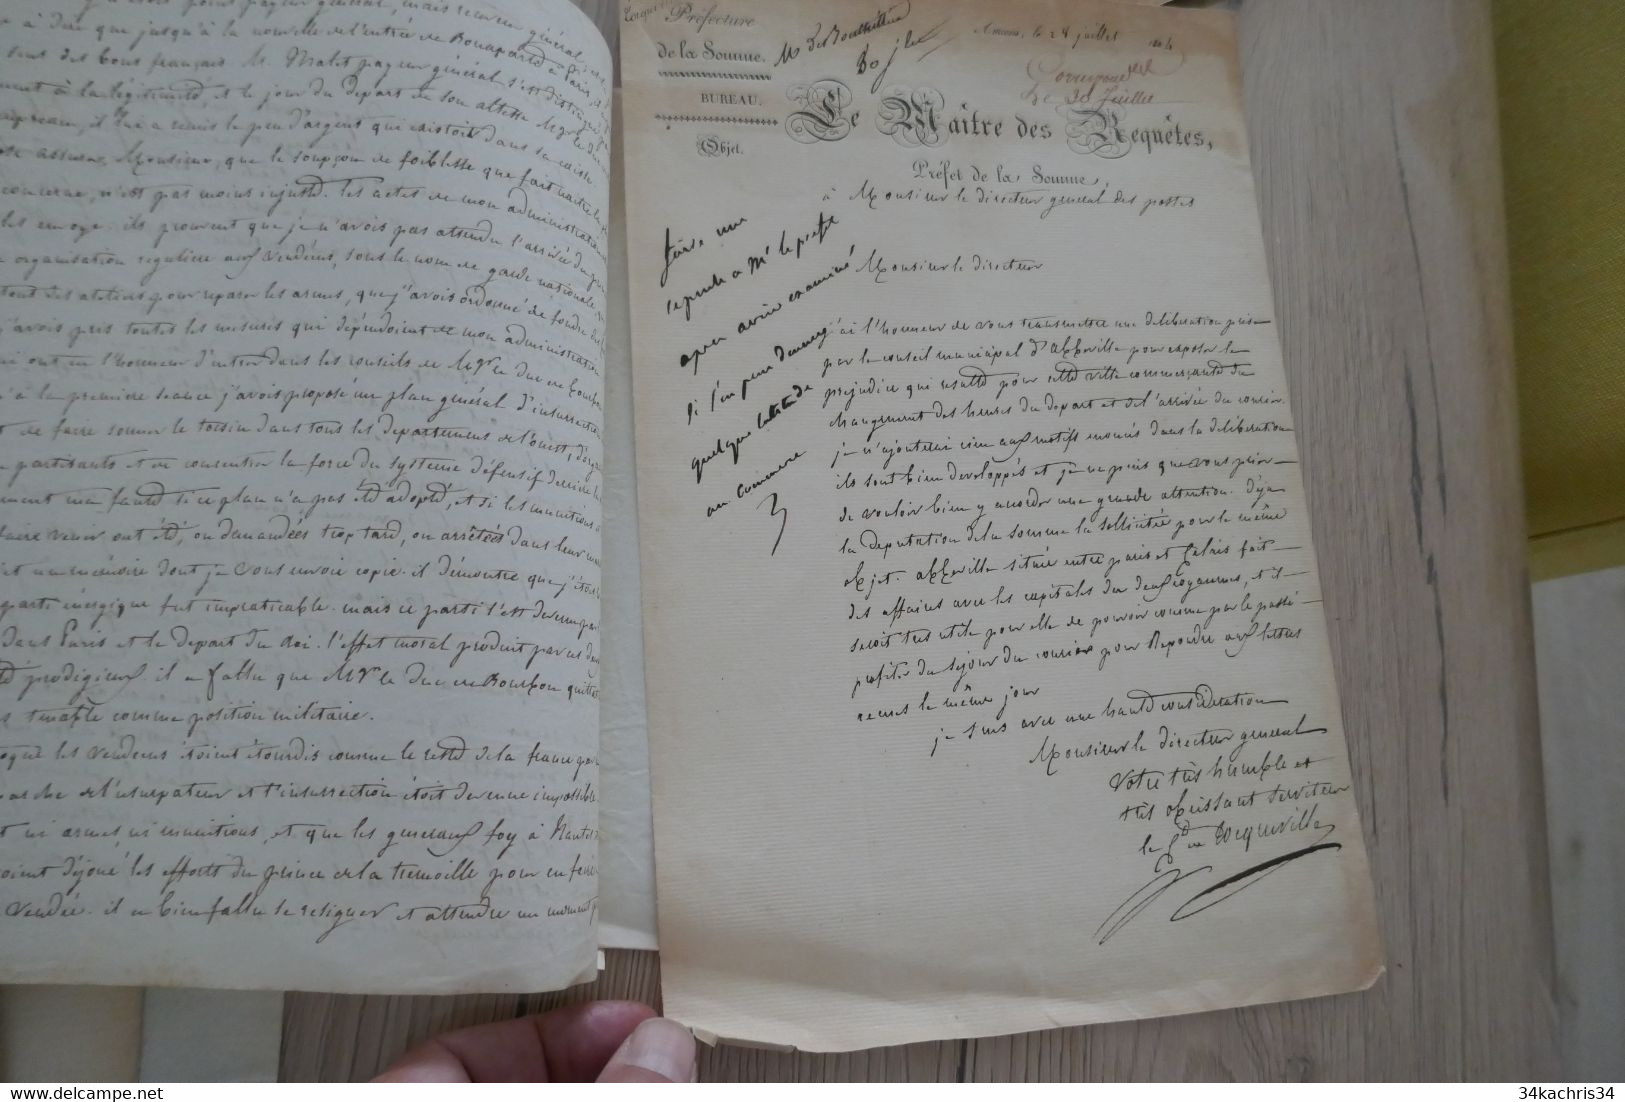 à dire que jusqu'à la nouvelle de l'entrée de Bonaparte à Paris, il
sont des bons français. M. Malet payeur général s'est distingué
à la légitimité, et le jour du depart de son altesse Mgr le duc
il lui a remis le peu d'argent qui existoit dans sa caisse.
assurer, Monsieur, que le soupçon de foiblesse que fait naitre
concerne, n'est pas moins injuste. les actes de mon administration
envoye. ils prouvent que je n'avois pas attendu l'arrivée du
organisation reguliere aux Vendéens, sous le nom de garde nationale
des ateliers pour reparer les armes, que j'avois ordonné de fondre des
j'avois pris toutes les mesures qui dépendoient de mon administration
ont eu l'honneur d'entrer dans les conseils de Mgr le Duc de Bourbon
à la premiere seance j'avois proposé un plan général d'insurrection
de faire sonner le tocsin dans tous les departements de l'ouest,
partisants et de concentrer la force du systeme défensif derriere la
ma faute si ce plan n'a pas été adopté, et si les munitions
faire venir ont été, ou demandées trop tard, ou arrêtées dans leur
un mémoire dont je vous envoie copie. il démontre que j'étois
parti énergique fut impraticable. mais ce parti l'est devenu
dans Paris et le depart du Roi. l'effet moral produit par ces deux
prodigieux il a fallu que Mgr le Duc de Bourbon quitte
tenable comme position militaire.
les vendéens étoient étourdis comme le reste de la france par
marche de l'usurpateur et l'insurrection étoit devenue impossible
ni armes, ni munitions, et que les generaux foy à Nantes
déjoué les efforts du prince de la tremoille pour en faire
Vendée. il a bien fallu se resigner et attendre un moment
Préfecture
de la Somme.
BUREAU.
Objet.
30 jlet
Amiens, le 28 juillet
le 30 Juillet
Le Maître des Requêtes,
Préfet de la Somme,
à Monsieur le directeur general des postes
faire une
reponse a Mr le prefet
apres avoir examiné
si l'on peut donner
quelque latitude
au commerce
Monsieur le directeur
j'ai l'honneur de vous transmettre une deliberation prise
par le conseil municipal d'abbeville pour exposer le
prejudice qui resulte pour cette ville commerçante du
changement des heures du depart et de l'arrivée du courier.
je n'ajouterai rien aux motifs enoncés dans la déliberation
ils sont bien developpés et je ne puis que vous prier
de vouloir bien y accorder une grande attention. déja
la deputation de la somme la sollicitée pour le même
objet. abbeville située entre paris et Calais fait
des affaires avec les capitales des deux royaumes, et il
seroit tres utile pour elle de pouvoir comme par le passé
profiter du sejour du courier pour repondre aux lettres
recues le même jour
je suis avec une haute consideration
Monsieur le directeur general
votre très humble et
très obeissant serviteur
le Cte de tocqueville
34kachris34